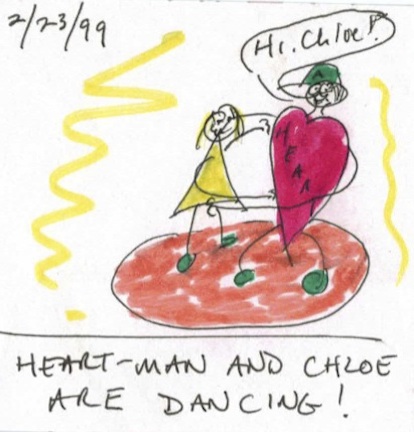 2/23/99
Hi, Chloe!
A
HEAR
HEART-MAN AND CHLOE
ARE DANCING!